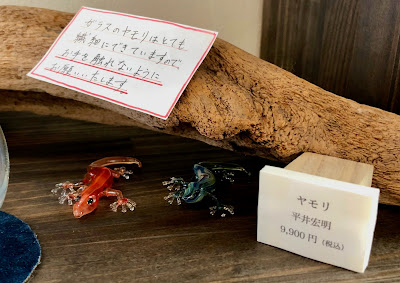 ガラスのヤモリはとても
繊細にできていますので
お手を触れないように
お願いいたします
ヤモリ
平井宏明
9,900円(税込)